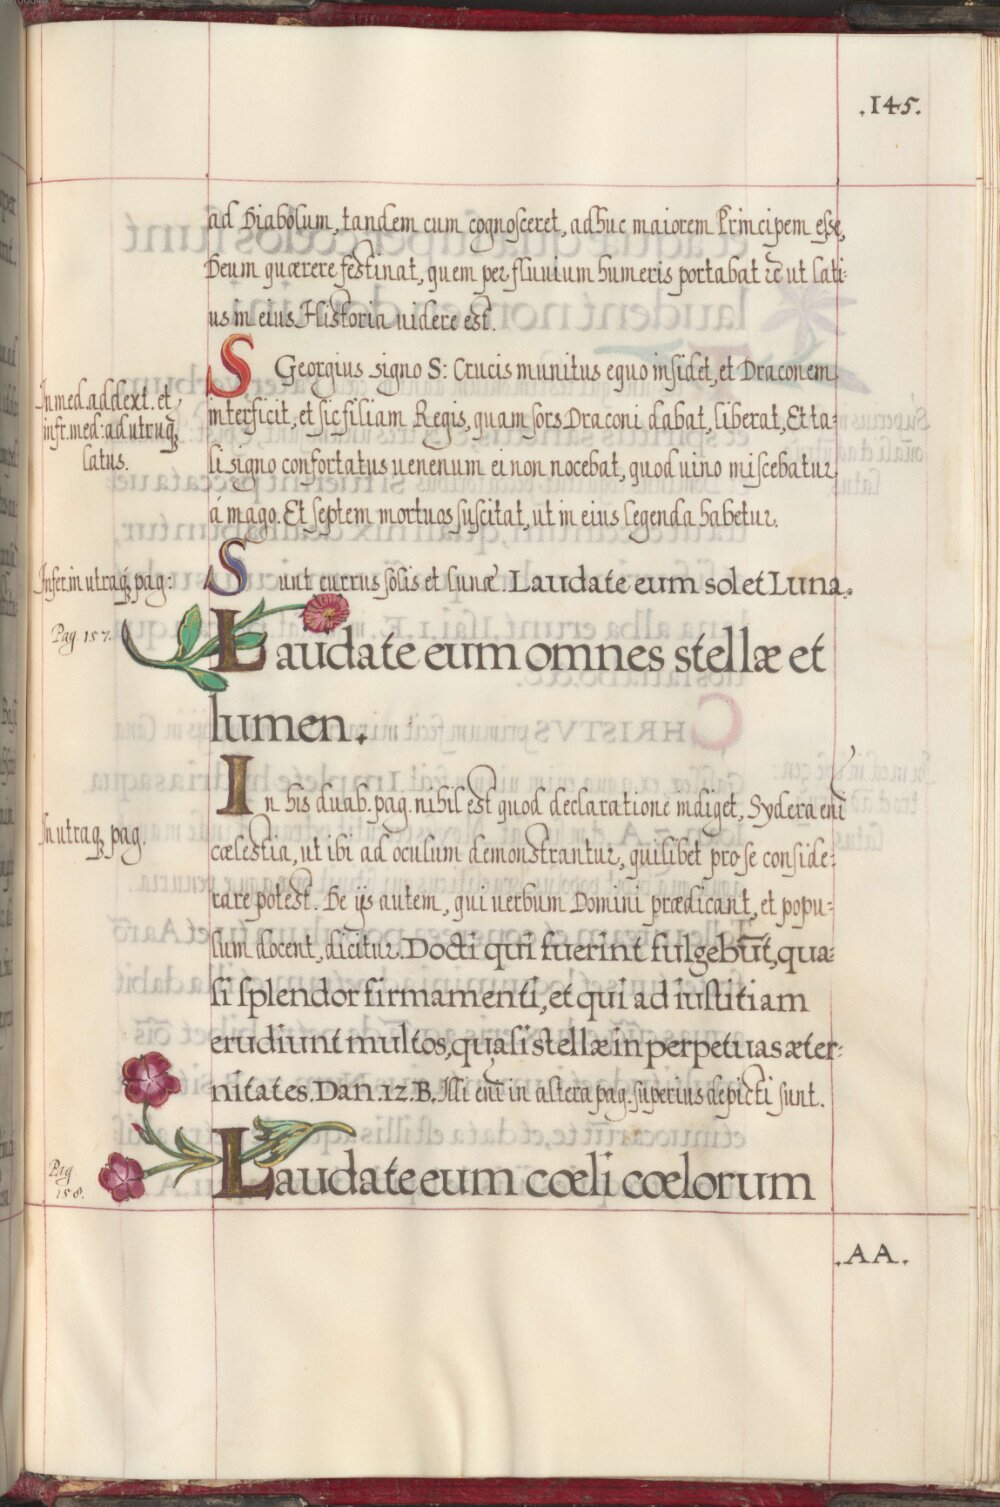 .145.
ad Diabolum, tandem cum cognosceret, adhuc maiorem Principem esse,
Deum quærere festinat, quem per fluuium humeris portabat &c ut lati-
us in eius Historia uidere est.
S Georgius signo S: Crucis munitus equo insidet, et Draconem
In med. ad dext. et
inft. med: ad utrusq;
latus.
interficit, et sic filiam Regis, quam sors Draconi dabat, liberat, Et ta-
li signo confortatus uenenum ei non nocebat, quod uino miscebatur
á mago. Et septem mortuos suscitat, ut in eius legenda habetur.
Infer. in utraq; pag:
Sunt currus solis et lunæ. Laudate eum sol et Luna.
Pag. 157.
Laudate eum omnes stellæ et
lumen.
In his duab. pag. nihil est quod declaratione indiget, Sydera eni
In utraq; pag.
cælestia, ut ibi ad oculum demonstrantur, quilibet pro se conside-
rare potest. De ijs autem, qui uerbum Domini prædicant, et popu-
lum docent, dicitur. Docti qui fuerint fulgebūt, qua-
si splendor firmamenti, et qui ad iustitiam
erudiunt multos, quasi stellæ in perpetuas æter-
nitates. Dan. 12. B. Illi eni in altera pag. superius depicti sunt.
Pag
158.
Laudate eum cœli cœlorum
.AA.